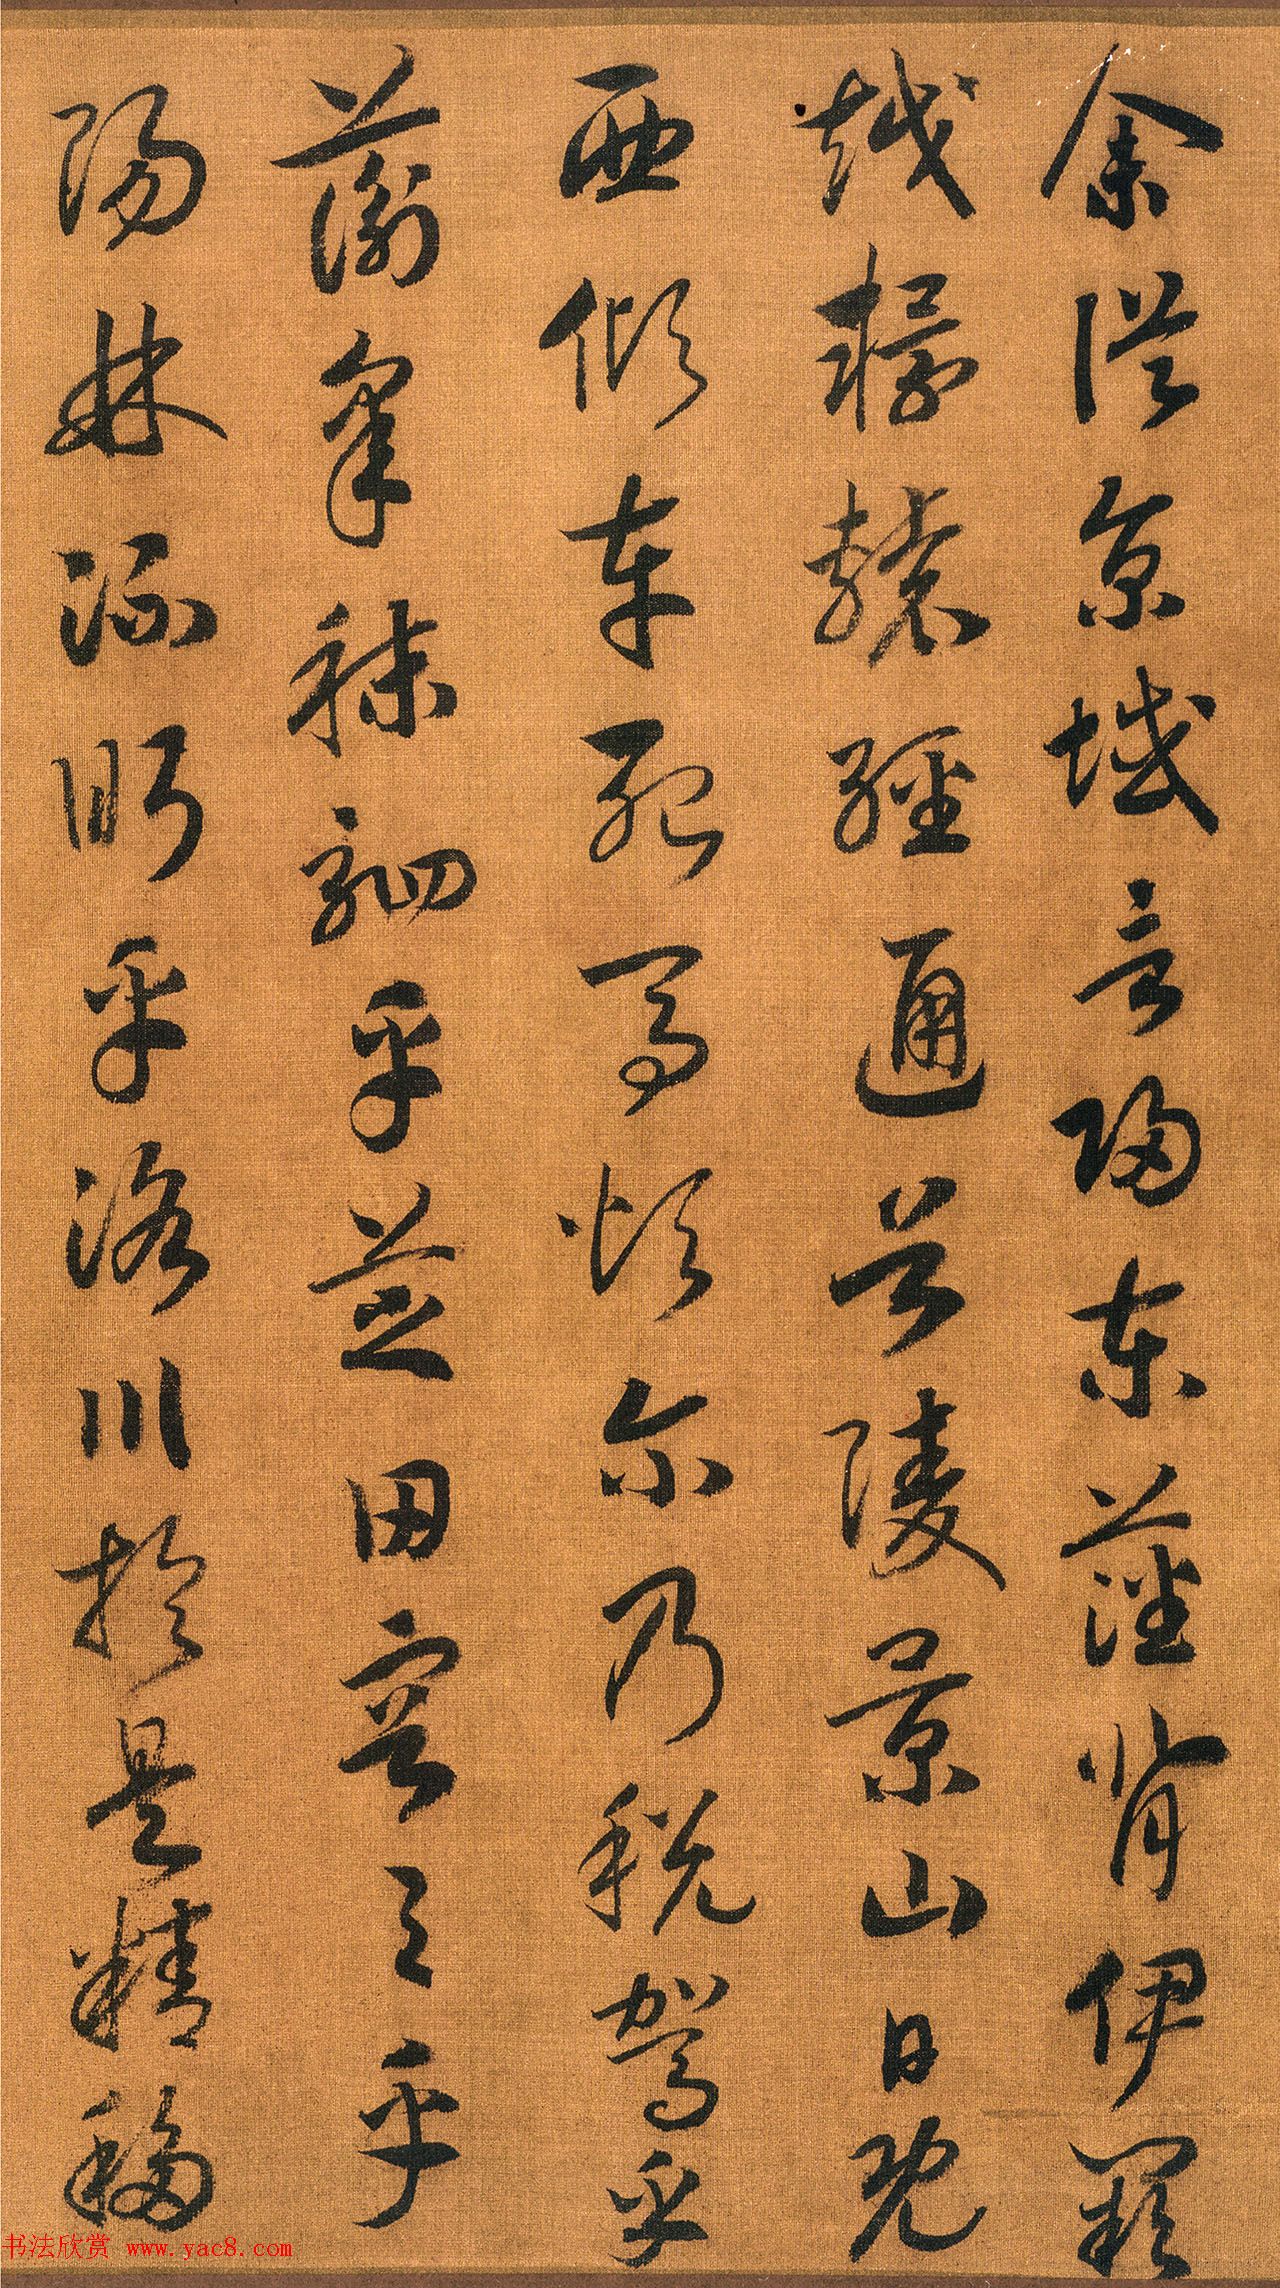 余従京域言歸東藩背伊闕
越轘轅經通谷陵景山日既
西傾車殆馬煩尔乃税駕乎
蘅皋秣駟乎芝田容與乎
陽林流眄乎洛川於是精移
书法欣赏 www.yac8.com